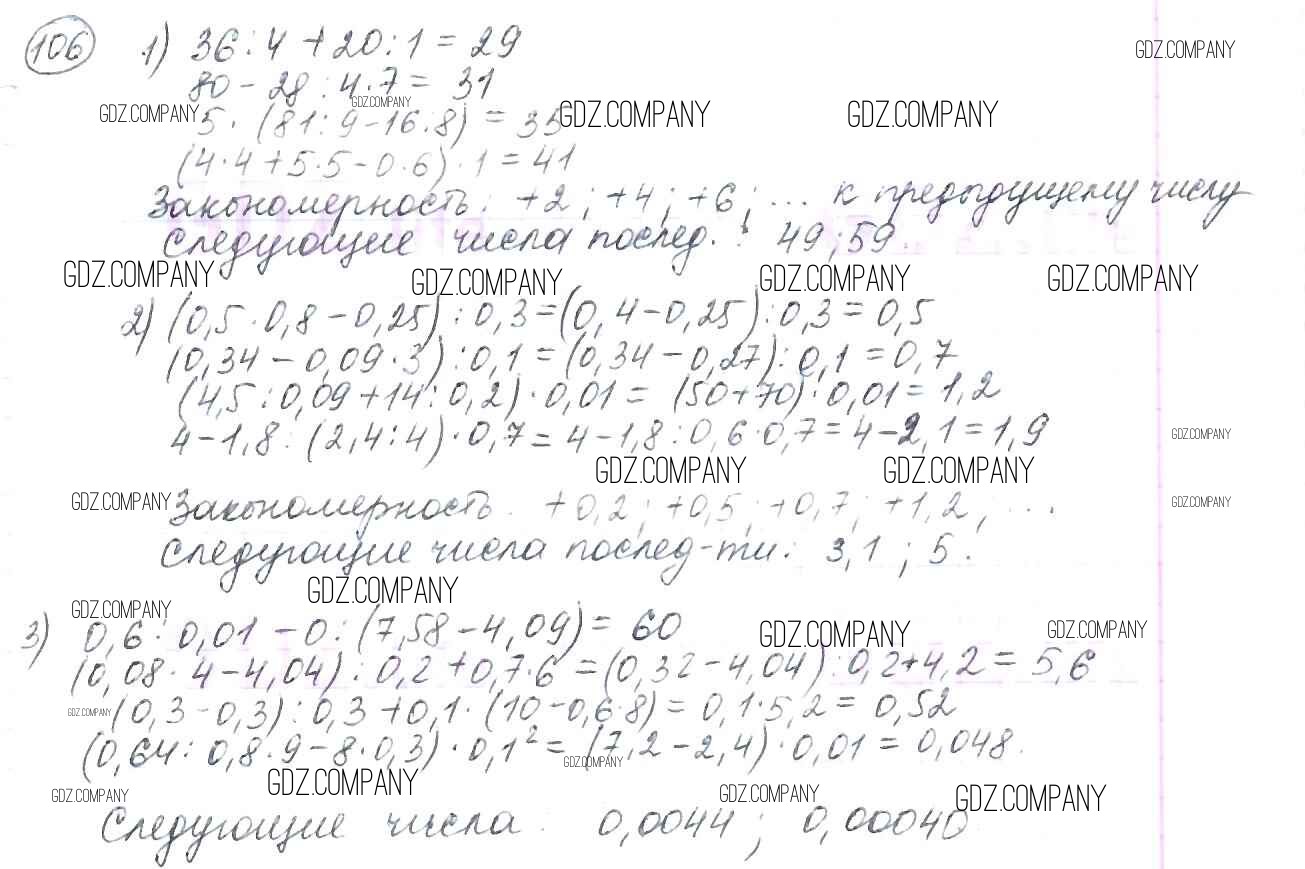 106 1) 36 : 4 + 20 : 1 = 29
GDZ.COMPANY
80 - 28 : 4 · 7 = 31
GDZ.COMPANY GDZ.COMPANY GDZ.COMPANY GDZ.COMPANY
5 · (81 : 9 - 16 : 8) = 35
(4 · 4 + 5 · 5 - 0 · 6) · 1 = 41
Закономерность: +2; +4; +6; ... к предыдущему числу
Следующие числа послед.: 49; 59.
GDZ.COMPANY GDZ.COMPANY GDZ.COMPANY GDZ.COMPANY
2) (0,5 · 0,8 - 0,25) : 0,3 = (0,4 - 0,25) : 0,3 = 0,5
(0,34 - 0,09 · 3) : 0,1 = (0,34 - 0,27) : 0,1 = 0,7
(4,5 : 0,09 + 14 : 0,2) · 0,01 = (50 + 70) · 0,01 = 1,2
4 - 1,8 : (2,4 : 4) · 0,7 = 4 - 1,8 : 0,6 · 0,7 = 4 - 2,1 = 1,9
GDZ.COMPANY
GDZ.COMPANY GDZ.COMPANY
GDZ.COMPANY Закономерность. +0,2; +0,5; +0,7; +1,2; ... GDZ.COMPANY
Следующие числа послед-ти: 3,1; 5.
GDZ.COMPANY
GDZ.COMPANY
3) 0,6 : 0,01 - 0 : (7,58 - 4,09) = 60
GDZ.COMPANY GDZ.COMPANY
(0,08 · 4 - 4,04) : 0,2 + 0,7 · 6 = (0,32 - 4,04) : 0,2 + 4,2 = 5,6
GDZ.COMPANY (0,3 - 0,3) : 0,3 + 0,1 · (10 - 0,6 · 8) = 0,1 · 5,2 = 0,52
(0,64 : 0,8 · 9 - 8 · 0,3) · 0,1² = (7,2 - 2,4) · 0,01 = 0,048.
GDZ.COMPANY
GDZ.COMPANY GDZ.COMPANY GDZ.COMPANY GDZ.COMPANY
Следующие числа: 0,0044; 0,00040